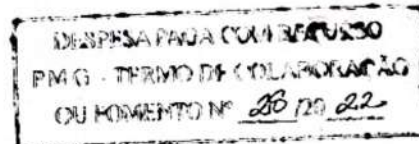 DESPESA PAGA COM RECURSO
PMG - TERMO DE COLABORAÇÃO
OU FOMENTO Nº 26 /20 22